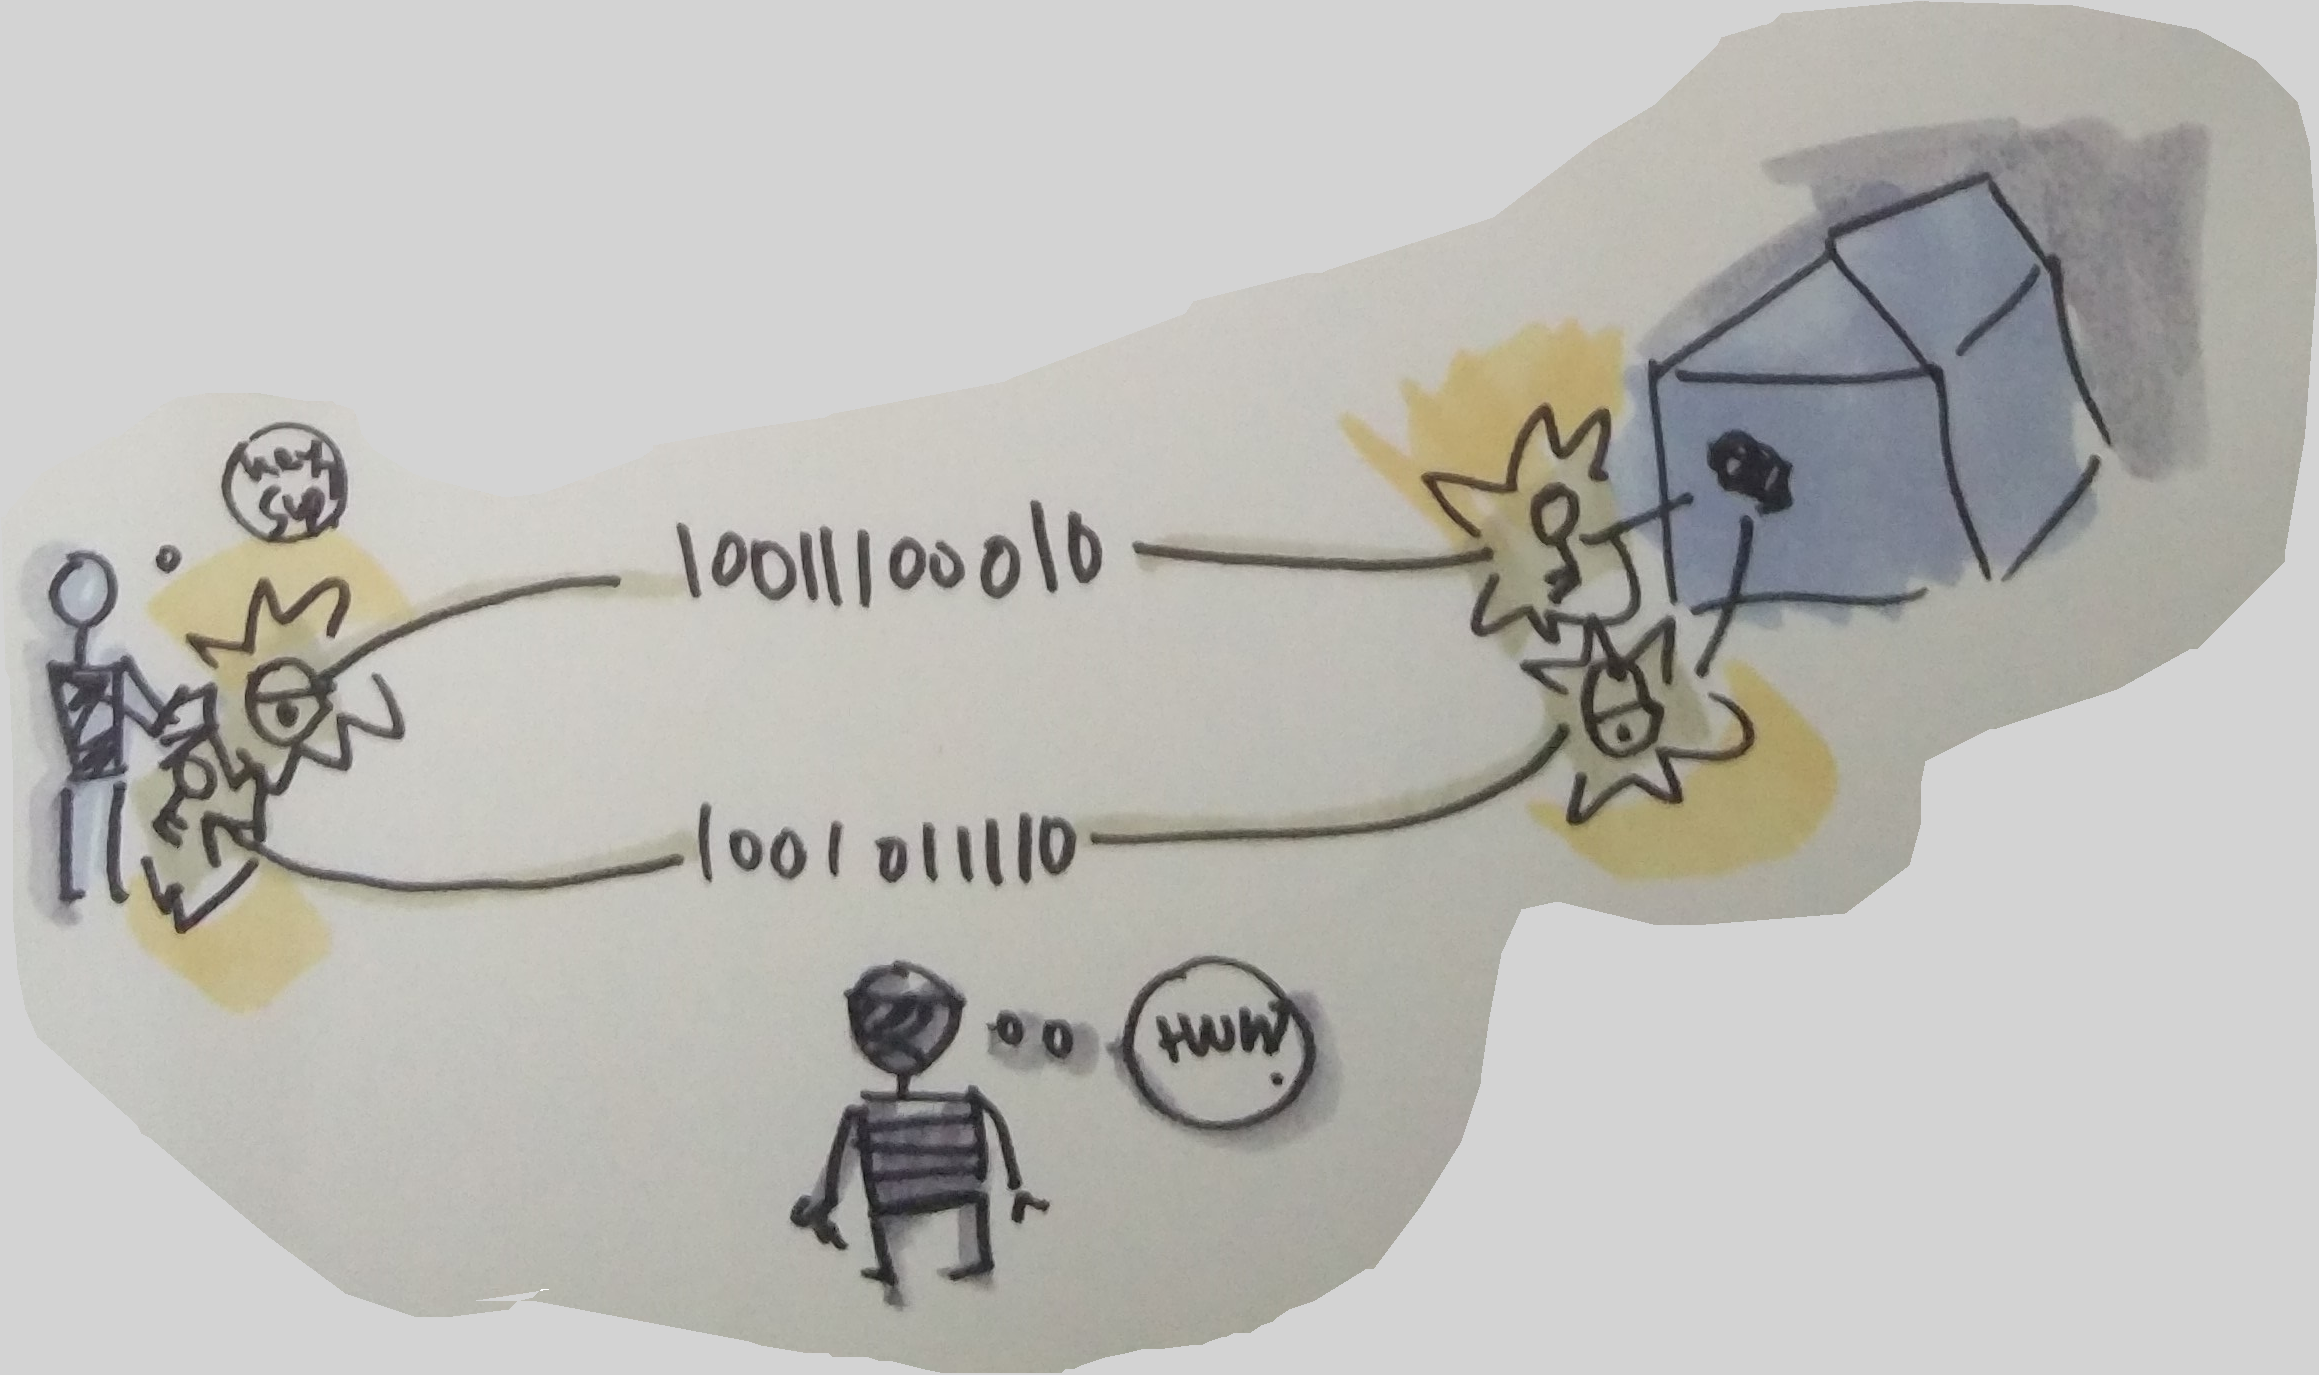 hey
sup
100111100010
1001 0111110